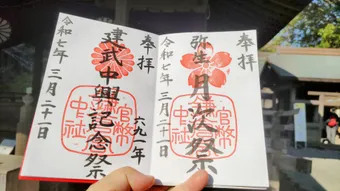 奉拝
弥生月次祭
令和七年三月二十一日
官幣中社
奉拝
建武中興記念祭
六九一年
令和七年三月二十一日
官幣中社